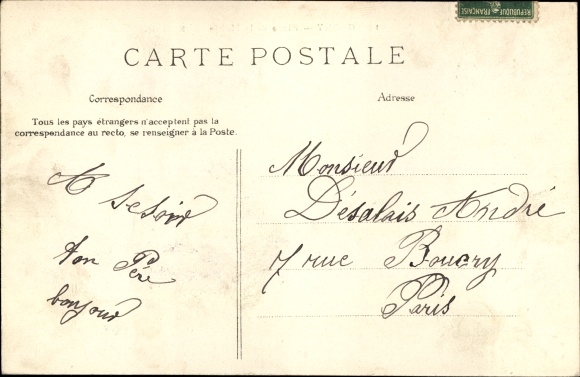 REPUBLIQUE FRANÇAISE
CARTE POSTALE
Correspondance
Tous les pays étrangers n'acceptent pas la
correspondance au recto, se renseigner à la Poste.
A ce soir
ton Père
bonjour
Adresse
Monsieur
Désalais André
7 rue Boucry
Paris